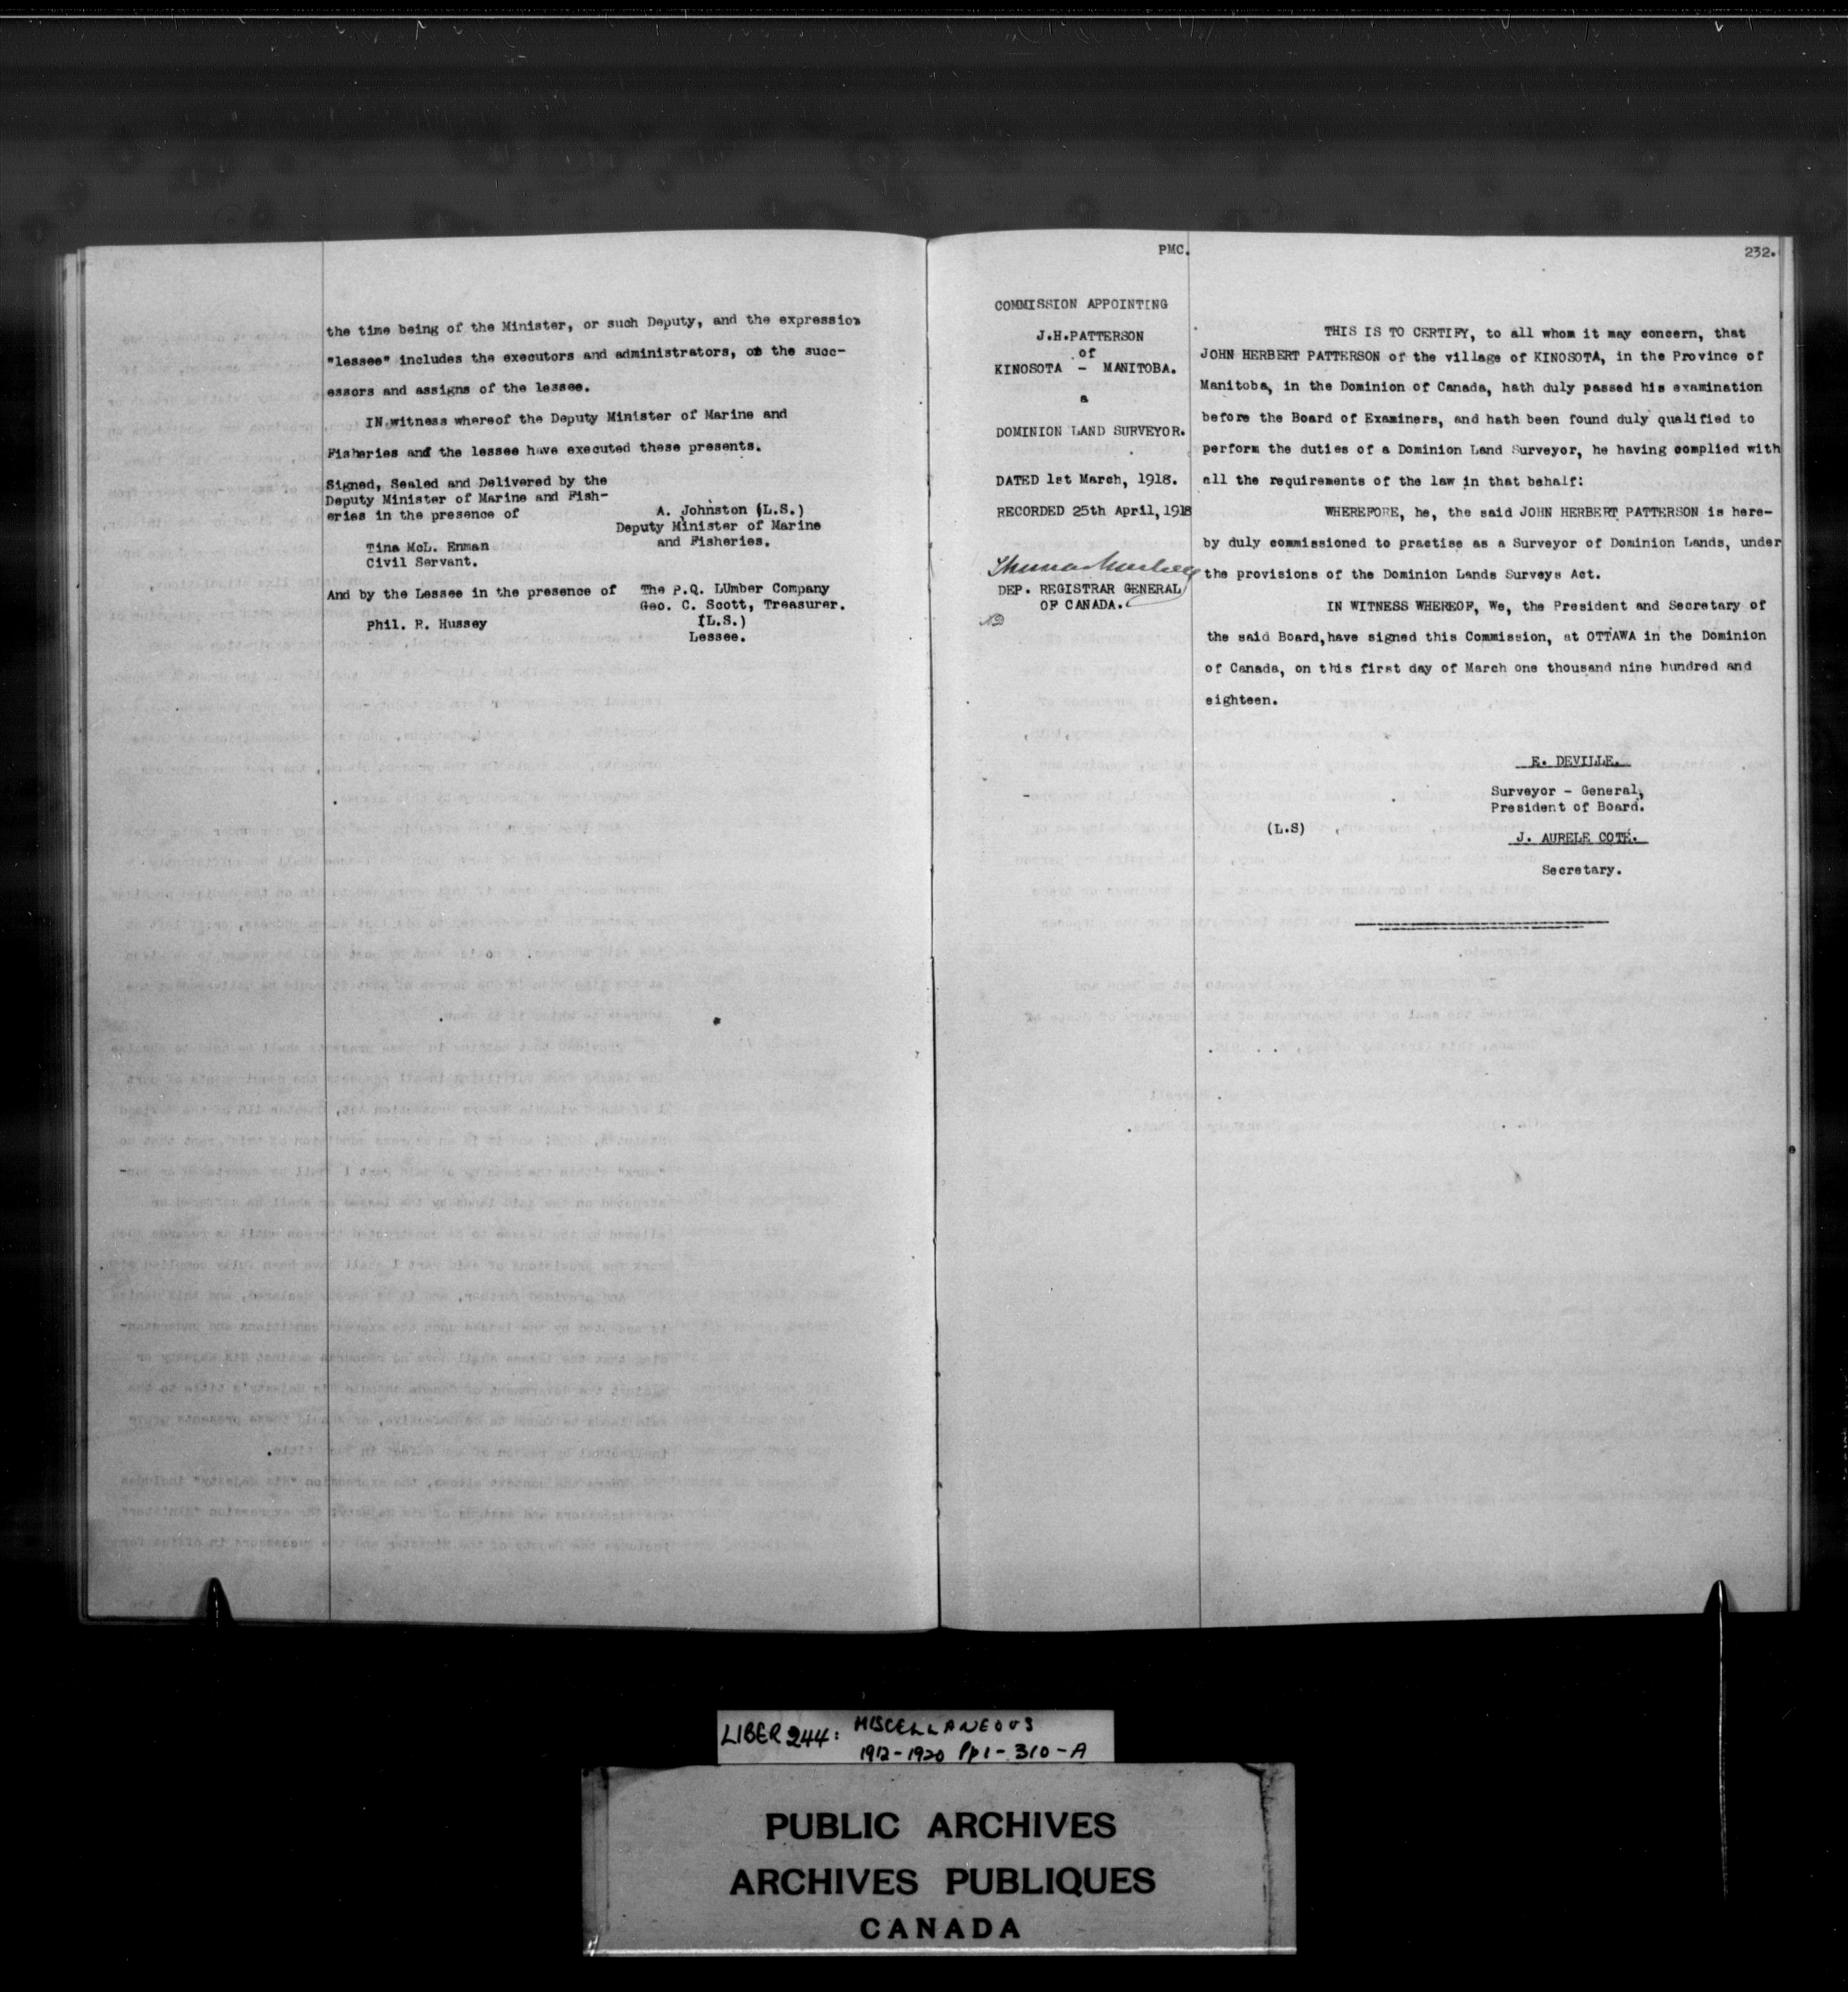 the time being of the Minister, or such Deputy, and the expression
"lessee" includes the executors and administrators, or the succ-
essors and assigns of the lessee.
IN witness whereof the Deputy Minister of Marine and
Fisheries and the lessee have executed these presents.
Signed, Sealed and Delivered by the
Deputy Minister of Marine and Fish-
eries in the presence of
A. Johnston (L.S.)
Deputy Minister of Marine
and Fisheries.
Tina McL. Enman
Civil Servant.
And by the Lessee in the presence of
The P.Q. LUmber Company
Geo. C. Scott, Treasurer.
(L.S.)
Lessee.
Phil. R. Hussey
PMC.
232.
COMMISSION APPOINTING
J.H.PATTERSON
of
KINOSOTA - MANITOBA.
a
DOMINION LAND SURVEYOR.
DATED 1st March, 1918.
RECORDED 25th April, 1918
DEP. REGISTRAR GENERAL
OF CANADA.
THIS IS TO CERTIFY, to all whom it may concern, that
JOHN HERBERT PATTERSON of the village of KINOSOTA, in the Province of
Manitoba, in the Dominion of Canada, hath duly passed his examination
before the Board of Examiners, and hath been found duly qualified to
perform the duties of a Dominion Land Surveyor, he having complied with
all the requirements of the law in that behalf:
WHEREFORE, he, the said JOHN HERBERT PATTERSON is here-
by duly commissioned to practise as a Surveyor of Dominion Lands, under
the provisions of the Dominion Lands Surveys Act.
IN WITNESS WHEREOF, We, the President and Secretary of
the said Board, have signed this Commission, at OTTAWA in the Dominion
of Canada, on this first day of March one thousand nine hundred and
eighteen.
E. DEVILLE.
Surveyor - General,
President of Board.
(L.S)
J. AURELE COTÉ.
Secretary.
LIBER 244: MISCELLANEOUS
1912-1920 Pp1-310-A
PUBLIC ARCHIVES
ARCHIVES PUBLIQUES
CANADA